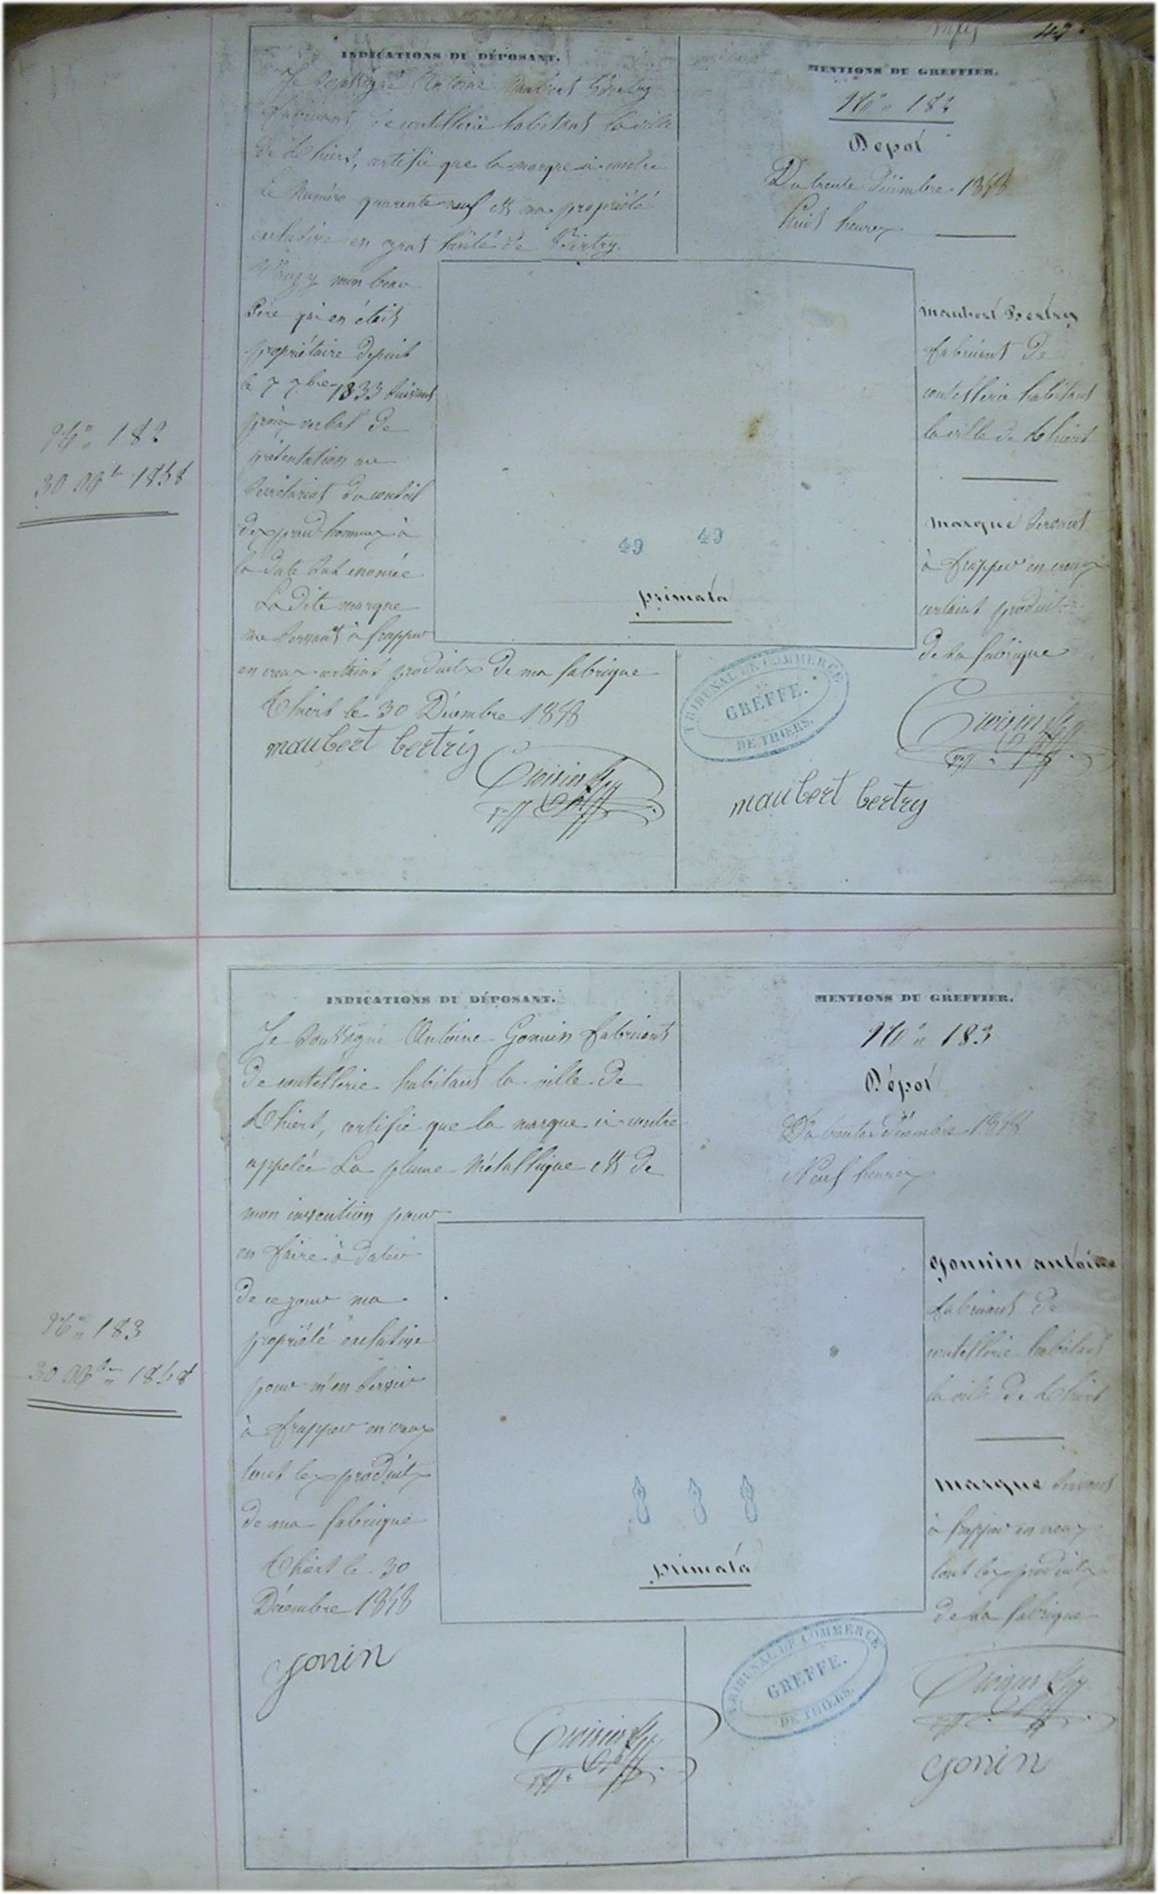 42
INDICATIONS DU DÉPOSANT.
Je soussigné Antoine Maubert Bertry
fabricant de coutellerie habitant la ville
de Thiers, certifie que la marque ci-contre
le Numéro quarante neuf est ma propriété
exclusive en qualité de Bertry
mon beau
Père qui en était
propriétaire depuis
le 7 7bre 1833 suivant
procès verbal de
présentation au
Secrétariat du conseil
des prud'hommes à
la date sus énoncée
La dite marque
me servant à frapper
en creux certains produits de ma fabrique
Thiers le 30 Décembre 1858
maubert bertry
MENTIONS DU GREFFIER.
No 182
Depôt
Du trente Décembre 1858
huit heures
maubert Bertry
fabricant de
coutellerie habitant
la ville de Thiers
marque servant
à frapper en creux
certains produits
de sa fabrique
49 49
primata
TRIBUNAL DE COMMERCE
GREFFE.
DE THIERS.
maubert bertry
No 182
30 Xbre 1858
INDICATIONS DU DÉPOSANT.
Je soussigné Antoine Gonnin fabricant
de coutellerie habitant la ville de
Thiers, certifie que la marque ci-contre
appelée La plume Métallique est de
mon invention pour
en faire à dater
de ce jour ma
propriété exclusive
pour m'en servir
à frapper en creux
tous les produits
de ma fabrique
Thiers le 30
Décembre 1858
gonin
MENTIONS DU GREFFIER.
No 183
Dépôt
Du trente Décembre 1858
Neuf heures
gonnin antoine
fabricant de
coutellerie habitant
la ville de Thiers
marque servant
à frapper en creux
tous les produits
de sa fabrique
primata
TRIBUNAL DE COMMERCE
GREFFE.
DE THIERS.
gonin
No 183
30 Xbre 1858